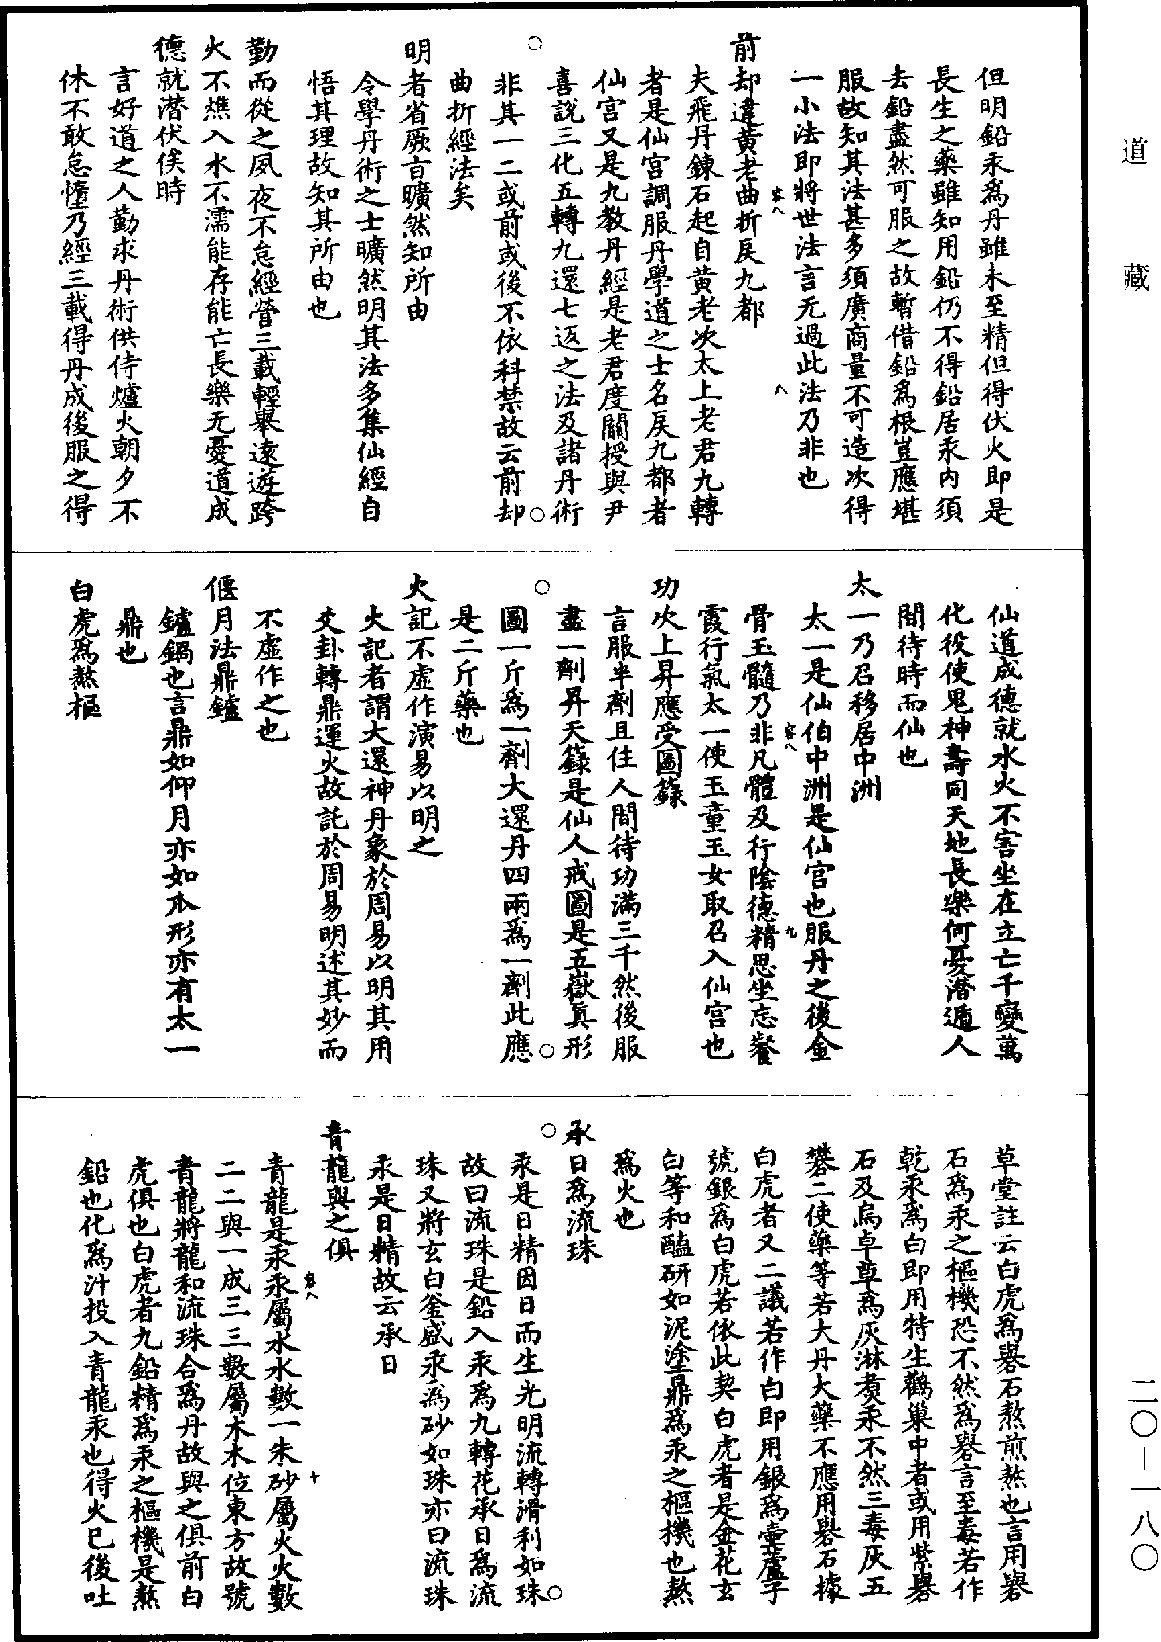 道藏
二〇—一八〇
但明鉛汞爲丹雖未至精但得伏火即是
長生之藥雖知用鉛仍不得鉛居汞内須
去鉛盡然可服之故暫借鉛爲根豈應堪
服故知其法甚多須廣商量不可造次得
一小法即將世法言无過此法乃非也
前却違黄老曲折戾九都
夫飛丹鍊石起自黄老次太上老君九轉
者是仙宫調服丹學道之士名戾九都者
仙宫又是九教丹經是老君度關授與尹
喜說三化五轉九還七返之法及諸丹術
非其一二或前或後不依科禁故云前却
曲折經法矣
明者省厥㫖曠然知所由
令學丹術之士曠然明其法多集仙經自
悟其理故知其所由也
勤而從之夙夜不怠經營三載輕舉遠遊跨
火不燋入水不濡能存能亡長樂无憂道成
德就潜伏俟時
言好道之人勤求丹術供侍爐火朝夕不
休不敢怠憧乃經三載得丹成後服之得
仙道成德就水火不害坐在立亡千變萬
化役使鬼神壽同天地長樂何憂潜遁人
間待時而仙也
太一乃召移居中洲
太一是仙伯中洲是仙宫也服丹之後金
骨玉髓乃非凡體及行陰德精思坐忘餐
霞行氣太一使玉童玉女取召入仙宫也
功次上昇應受圖籙
言服半劑且住人間待功滿三千然後服
盡一劑昇天籙是仙人戒圖是五嶽真形
圖一斤爲一劑大還丹四兩爲一劑此應
是二斤藥也
火記不虛作演易以明之
火記者謂大還神丹象於周易以明其用
爻卦轉鼎運火故託於周易明述其妙而
不虛作之也
偃月法鼎鑪
鑪鍋也言鼎如仰月亦如本形亦有太一
鼎也
白虎爲熬樞
草堂註云白虎爲礜石熬煎熬也言用礜
石爲汞之樞機恐不然爲礜言至毒若作
乾汞爲白即用特生鸛巢中者或用紫礜
石及烏卓草爲灰淋煑汞不然三毒灰五
礬二使藥等若大丹大藥不應用礜石據
白虎者又二議若作白即用銀爲壷蘆子
號銀爲白虎若依此契白虎者是金花玄
白等和醯研如泥塗鼎爲汞之樞機也熬
爲火也
承日爲流珠
汞是日精因日而生光明流轉滑利如珠
故曰流珠是鉛入汞爲九轉花承日爲流
珠又將玄白釜盛汞爲砂如珠亦曰流珠
汞是日精故云承日
青龍與之俱
青龍是汞汞屬水水數一朱砂屬火火數
二二與一成三三數屬木木位東方故號
青龍將龍和流珠合爲丹故與之俱前白
虎俱也白虎者九鉛精爲汞之樞機是熬
鉛也化爲汁投入青龍汞也得火已後吐